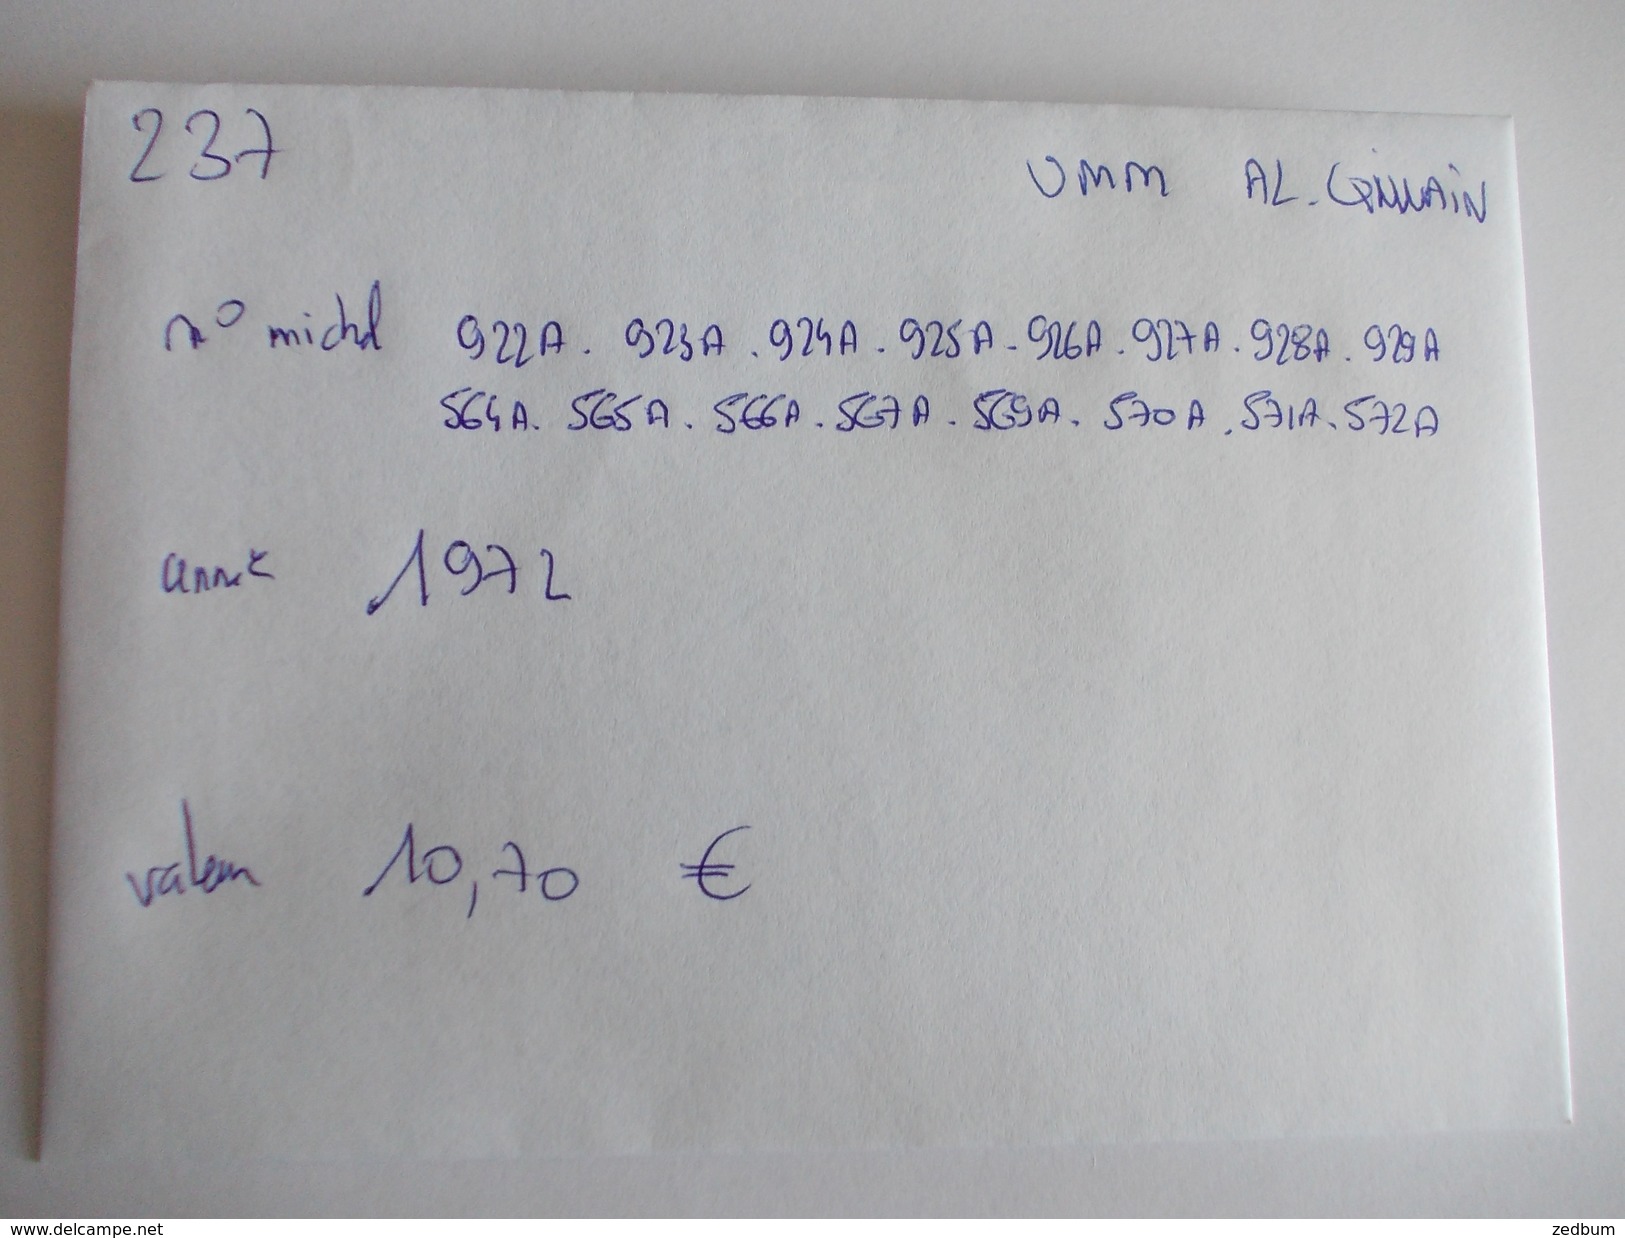 237
UMM AL. QIWAIN
n° michel 922A. 923A. 924A. 925A- 926A. 927A. 928A. 929A
564A. 565A. 566A. 567A. 569A. 570A. 571A. 572A
année 1972
valeur 10,70 €
www.delcampe.net
zedbum